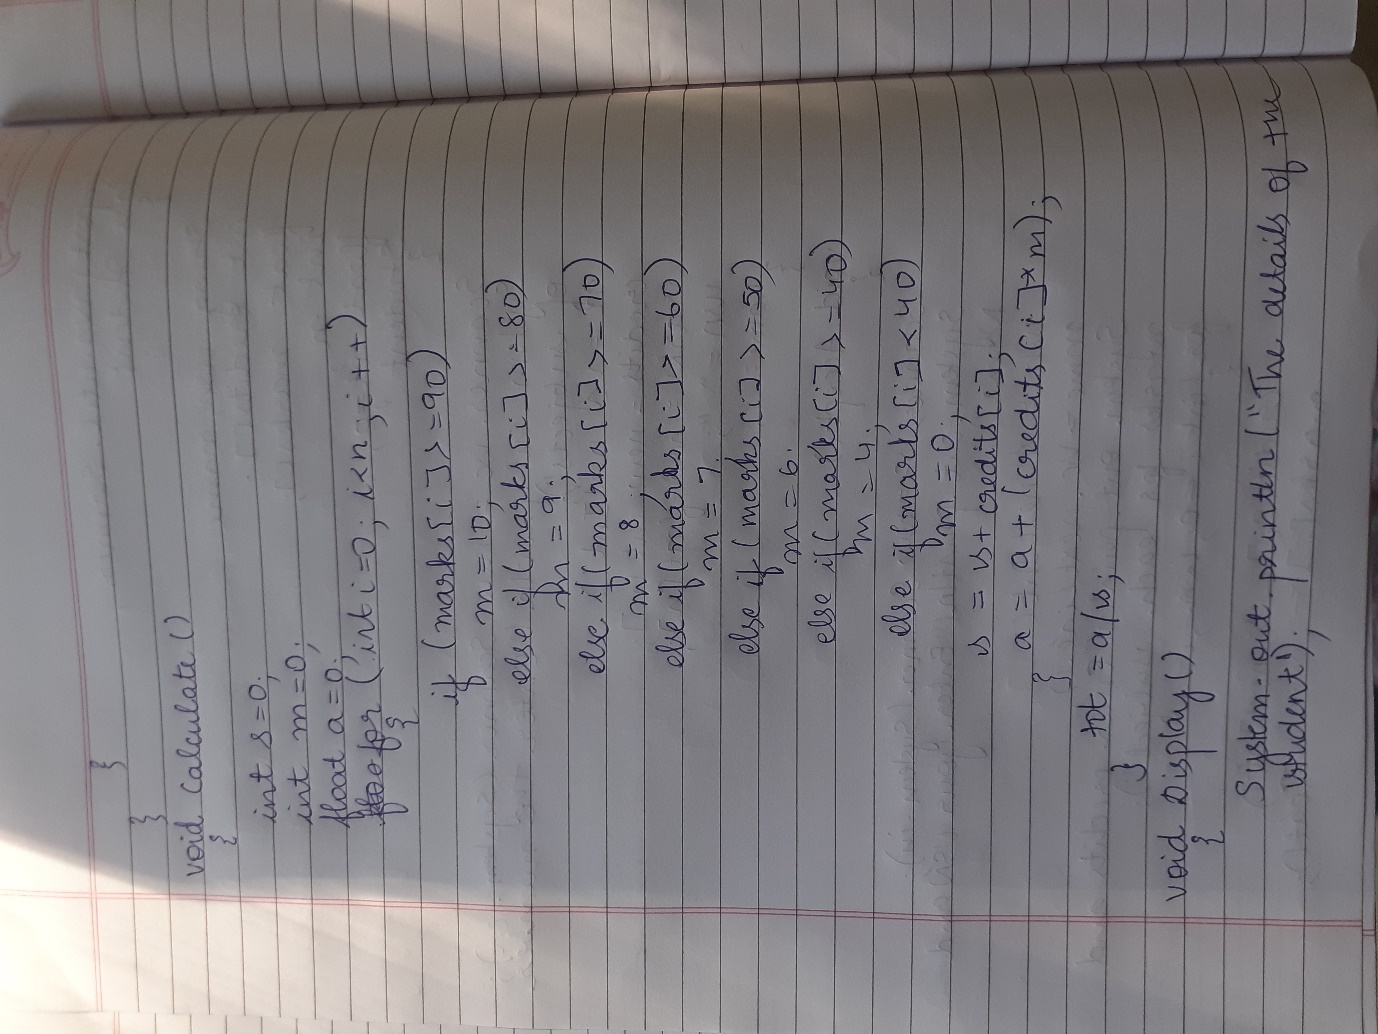 }
}
void calculate()
{
int s=0;
int m=0;
float a=0;
for (int i=0; i<n; i++)
{
if (marks[i]>=90)
m=10;
else if (marks[i]>=80)
m=9;
else if (marks[i]>=70)
m=8
else if (marks[i]>=60)
m=7;
else if (marks[i]>=50)
m=6;
else if (marks[i]>=40)
m=4;
else if (marks[i]<40)
m=0;
s=s+credits[i];
a=a+(credits[i]*m);
}
tot=a/s;
}
void Display()
{
System.out.println("The details of the
student");